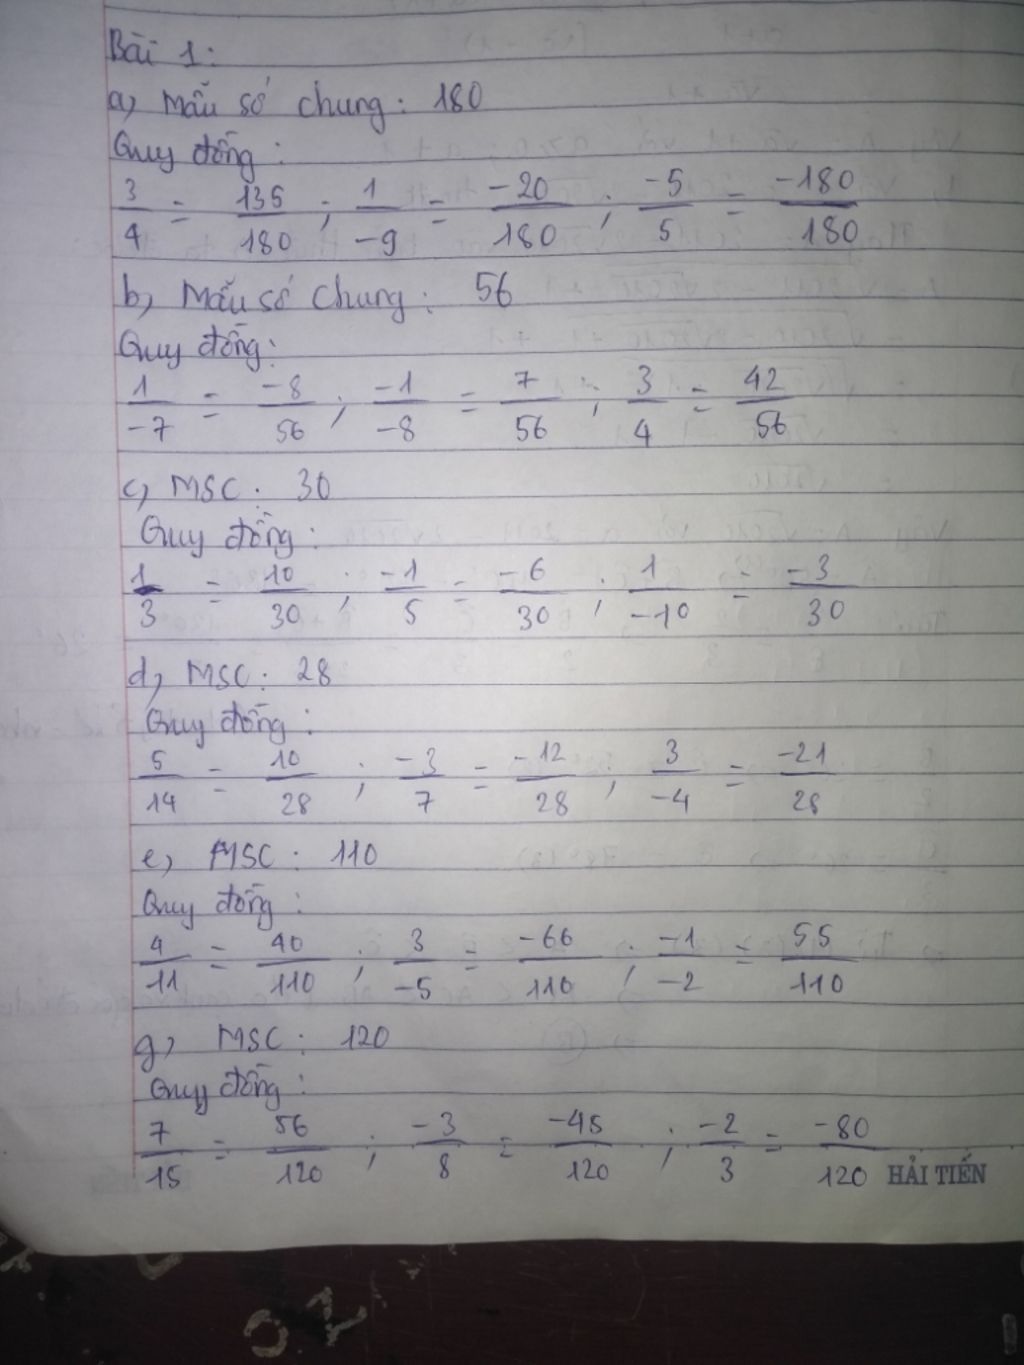 Bài 1:
a, Mẫu số chung: 180
Quy đồng:
3/4 = 135/180 ; 1/-9 = -20/180 ; -5/5 = -180/180
b, Mẫu số chung: 56
Quy đồng:
1/-7 = -8/56 ; -1/-8 = 7/56 ; 3/4 = 42/56
c, MSC: 30
Quy đồng:
1/3 = 10/30 ; -1/5 = -6/30 ; 1/-10 = -3/30
d, MSC: 28
Quy đồng:
5/14 = 10/28 ; -3/7 = -12/28 ; 3/-4 = -21/28
e, MSC: 110
Quy đồng:
4/11 = 40/110 ; 3/-5 = -66/110 ; -1/-2 = 55/110
g, MSC: 120
Quy đồng:
7/15 = 56/120 ; -3/8 = -45/120 ; -2/3 = -80/120
HẢI TIẾN